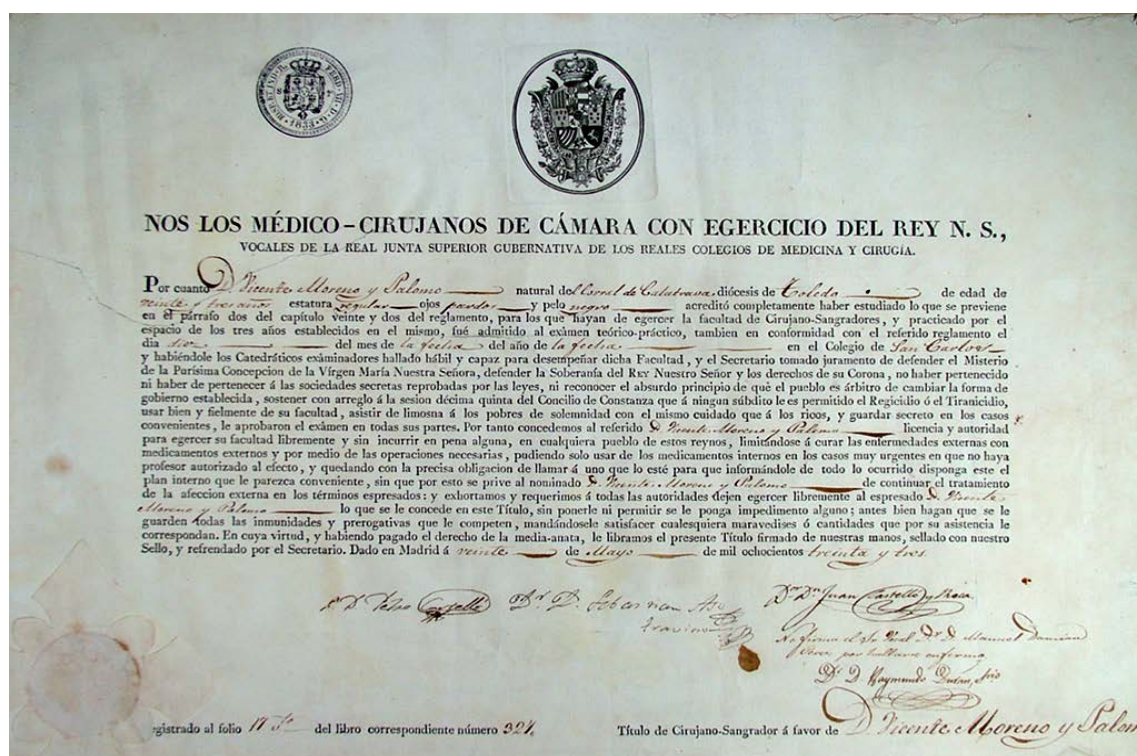 HISP. ET IND. R. FERD. VII. D. G. 1833
NOS LOS MÉDICO-CIRUJANOS DE CÁMARA CON EGERCICIO DEL REY N. S.,
VOCALES DE LA REAL JUNTA SUPERIOR GUBERNATIVA DE LOS REALES COLEGIOS DE MEDICINA Y CIRUGÍA.
Por cuanto D. Vicente Moreno y Palomo natural del Corral de Calatrava diócesis de Toledo de edad de
veinte y tres años estatura regular ojos pardos y pelo negro acreditó completamente haber estudiado lo que se previene
en el párrafo dos del capítulo veinte y dos del reglamento, para los que hayan de egercer la facultad de Cirujano-Sangradores, y practicado por el
espacio de los tres años establecidos en el mismo, fué admitido al exámen teórico-práctico, tambien en conformidad con el referido reglamento el
dia diez del mes de la fecha del año de la fecha en el Colegio de San Carlos
y habiéndole los Catedráticos exáminadores hallado hábil y capaz para desempeñar dicha Facultad, y el Secretario tomado juramento de defender el Misterio
de la Purísima Concepcion de la Vírgen María Nuestra Señora, defender la Soberanía del REY Nuestro Señor y los derechos de su Corona, no haber pertenecido
ni haber de pertenecer á las sociedades secretas reprobadas por las leyes, ni reconocer el absurdo principio de que el pueblo es árbitro de cambiar la forma de
gobierno establecida, sostener con arreglo á la sesion décima quinta del Concilio de Constanza que á ningun súbdito le es permitido el Regicidio ó el Tiranicidio,
usar bien y fielmente de su facultad, asistir de limosna á los pobres de solemnidad con el mismo cuidado que á los ricos, y guardar secreto en los casos
convenientes, le aprobaron el exámen en todas sus partes. Por tanto concedemos al referido D. Vicente Moreno y Palomo licencia y autoridad
para egercer su facultad libremente y sin incurrir en pena alguna, en cualquiera pueblo de estos reynos, limitándose á curar las enfermedades externas con
medicamentos externos y por medio de las operaciones necesarias, pudiendo solo usar de los medicamentos internos en los casos muy urgentes en que no haya
profesor autorizado al efecto, y quedando con la precisa obligacion de llamar á uno que lo esté para que informándole de todo lo ocurrido disponga este el
plan interno que le parezca conveniente, sin que por esto se prive al nominado D. Vicente Moreno y Palomo de continuar el tratamiento
de la afeccion externa en los términos espresados: y exhortamos y requerimos á todas las autoridades dejen egercer libremente al espresado D. Vicente
Moreno y Palomo lo que se le concede en este Título, sin ponerle ni permitir se le ponga impedimento alguno; antes bien hagan que se le
guarden todas las inmunidades y prerogativas que le competen, mandándosele satisfacer cualesquiera maravedises ó cantidades que por su asistencia le
correspondan. En cuya virtud, y habiendo pagado el derecho de la media-anata, le libramos el presente Título firmado de nuestras manos, sellado con nuestro
Sello, y refrendado por el Secretario. Dado en Madrid á veinte de Mayo de mil ochocientos treinta y tres.
Dr. D. Pedro Castelló Dr. D. Sebastian Aso Travieso Dr. Dn. Juan Castelló y Roca
No firma el Sr. Vocal Dr. D. Manuel Damian
Perez por hallarse enfermo
Dr. D. Raymundo Duran, Srio
egistrado al folio 17 del libro correspondiente número 327. Título de Cirujano-Sangrador á favor de D. Vicente Moreno y Palom